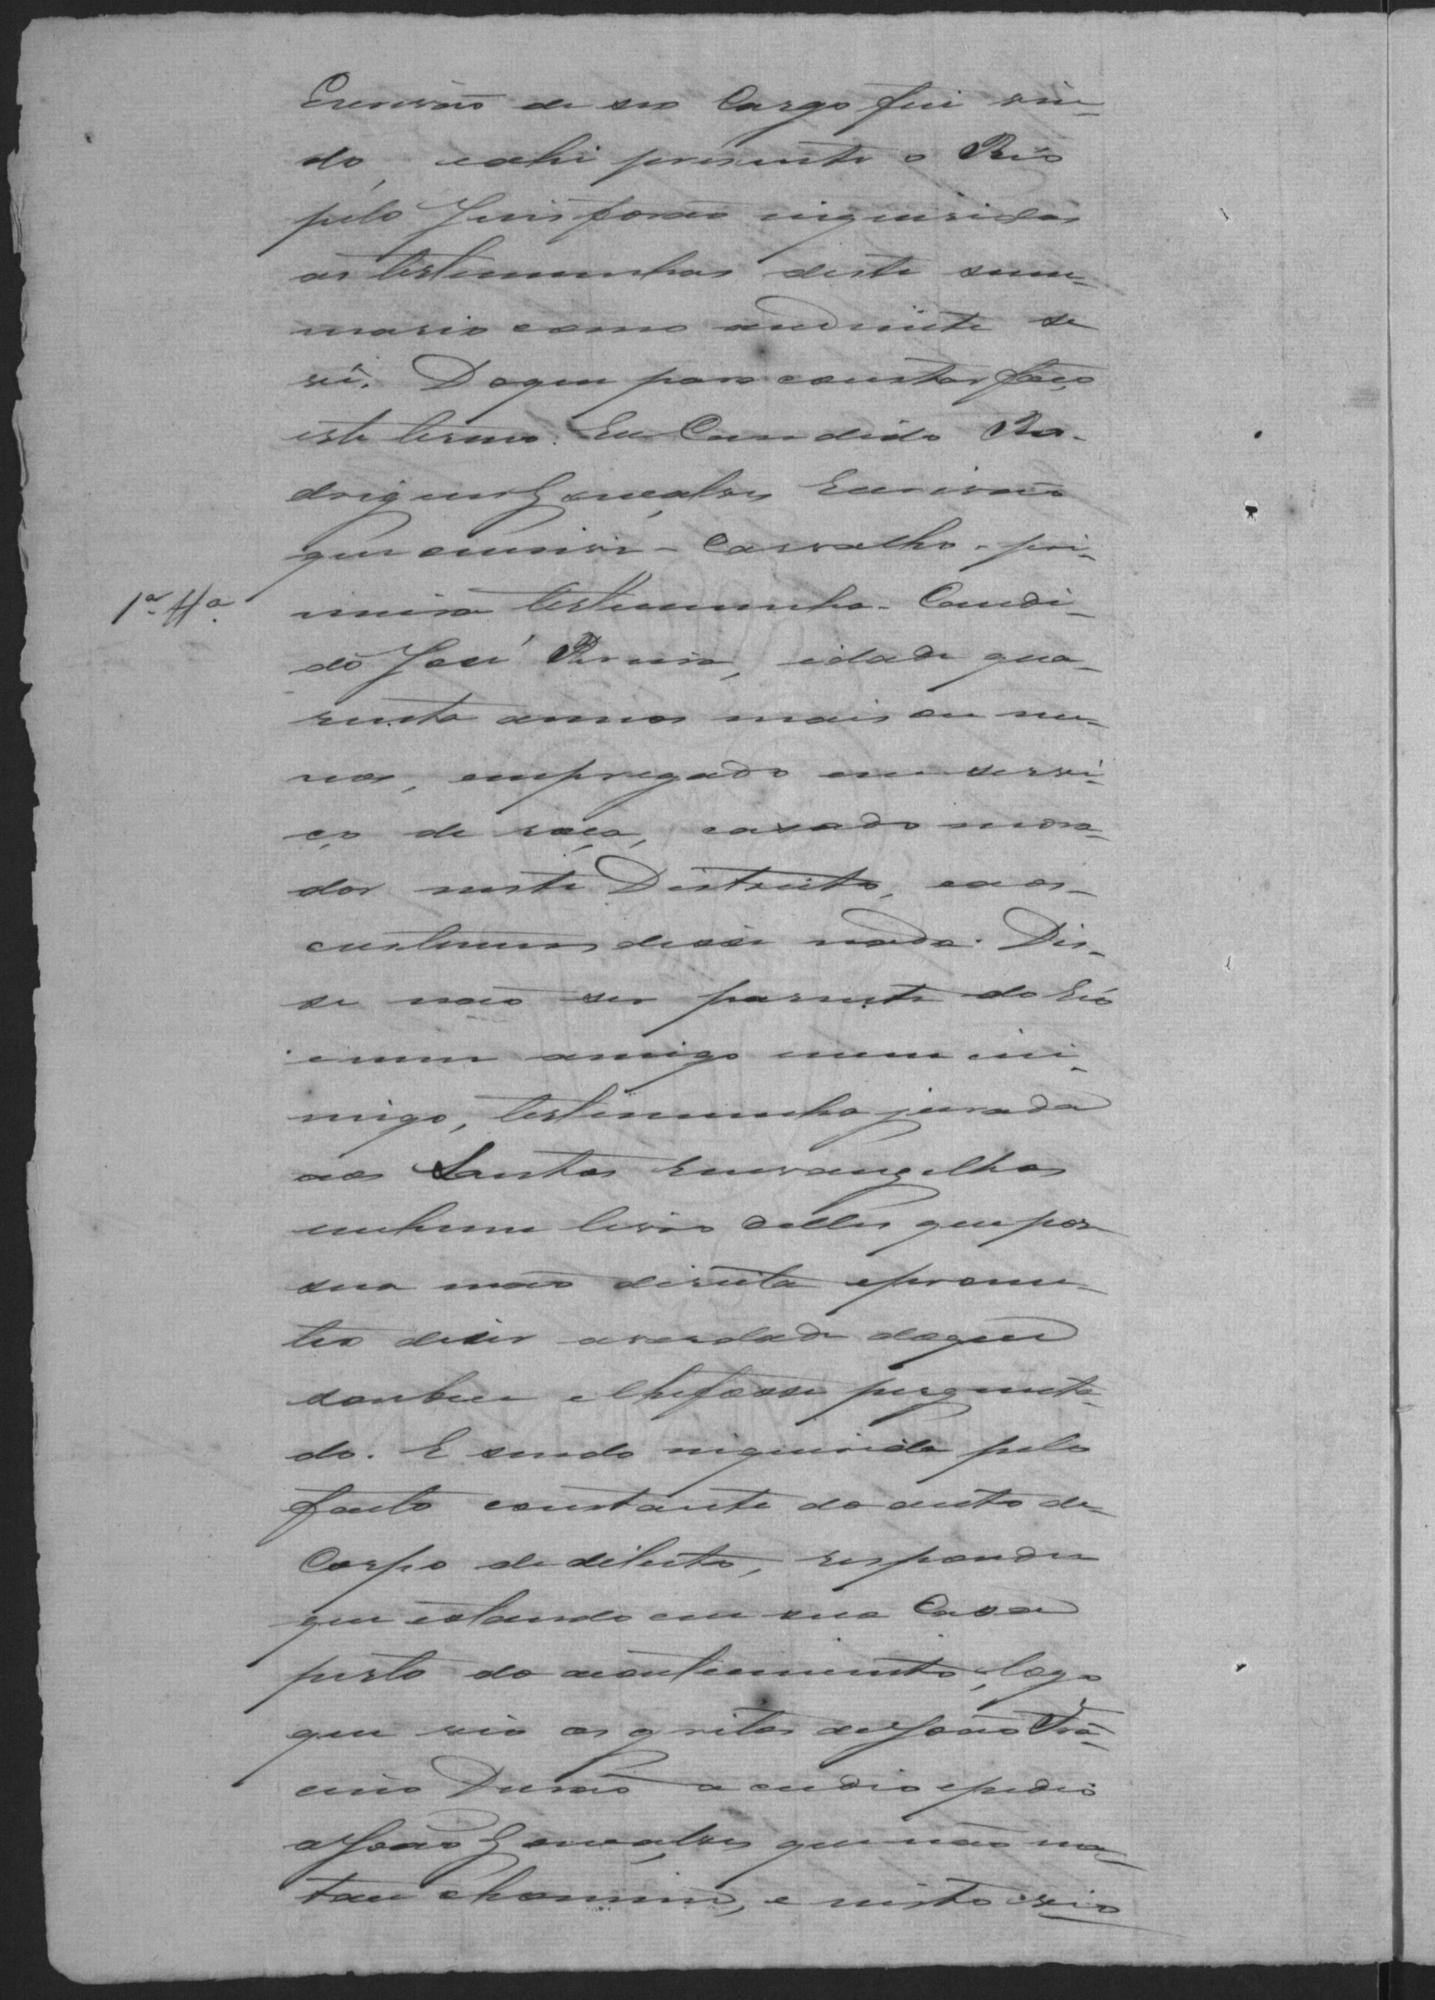 Escrivão de seo Cargo fui vin-
do, e ahi presente o Reo
pelo Juis forão inqueridas
as testemunhas deste sum-
mario como adiante se
vê. Do que para constar faço
este termo. Eu Candido Ro-
drigues Gonçalves Escrivão
que escrivi - Carvalho - pri-
1ª Tta. meira testemunha - Candi-
do José Pereira, idade qua-
renta annos mais ou me-
nos, empregado em servi-
ço de roça, casado mora-
dor neste Destricto, e aos
custumes disse nada. Dis-
se não ser parente do Réo
e nem amigo nem ini-
migo, testemunha jurada
aos Santos Envangelhos
em hum livro delles que por
sua mão direita e prome-
teo diser a verdade do que
soubece e lhe fosse pergunta-
do. E sendo inquerida pelo
facto constante do auto de
Corpo de delicto, respondeu
que estando em sua Casa
perto do acontecimento, logo
que vio os gritos de João
Durão acudio e pedio
a João Gonçalves que não ma-
tace o homem, e nisto vio